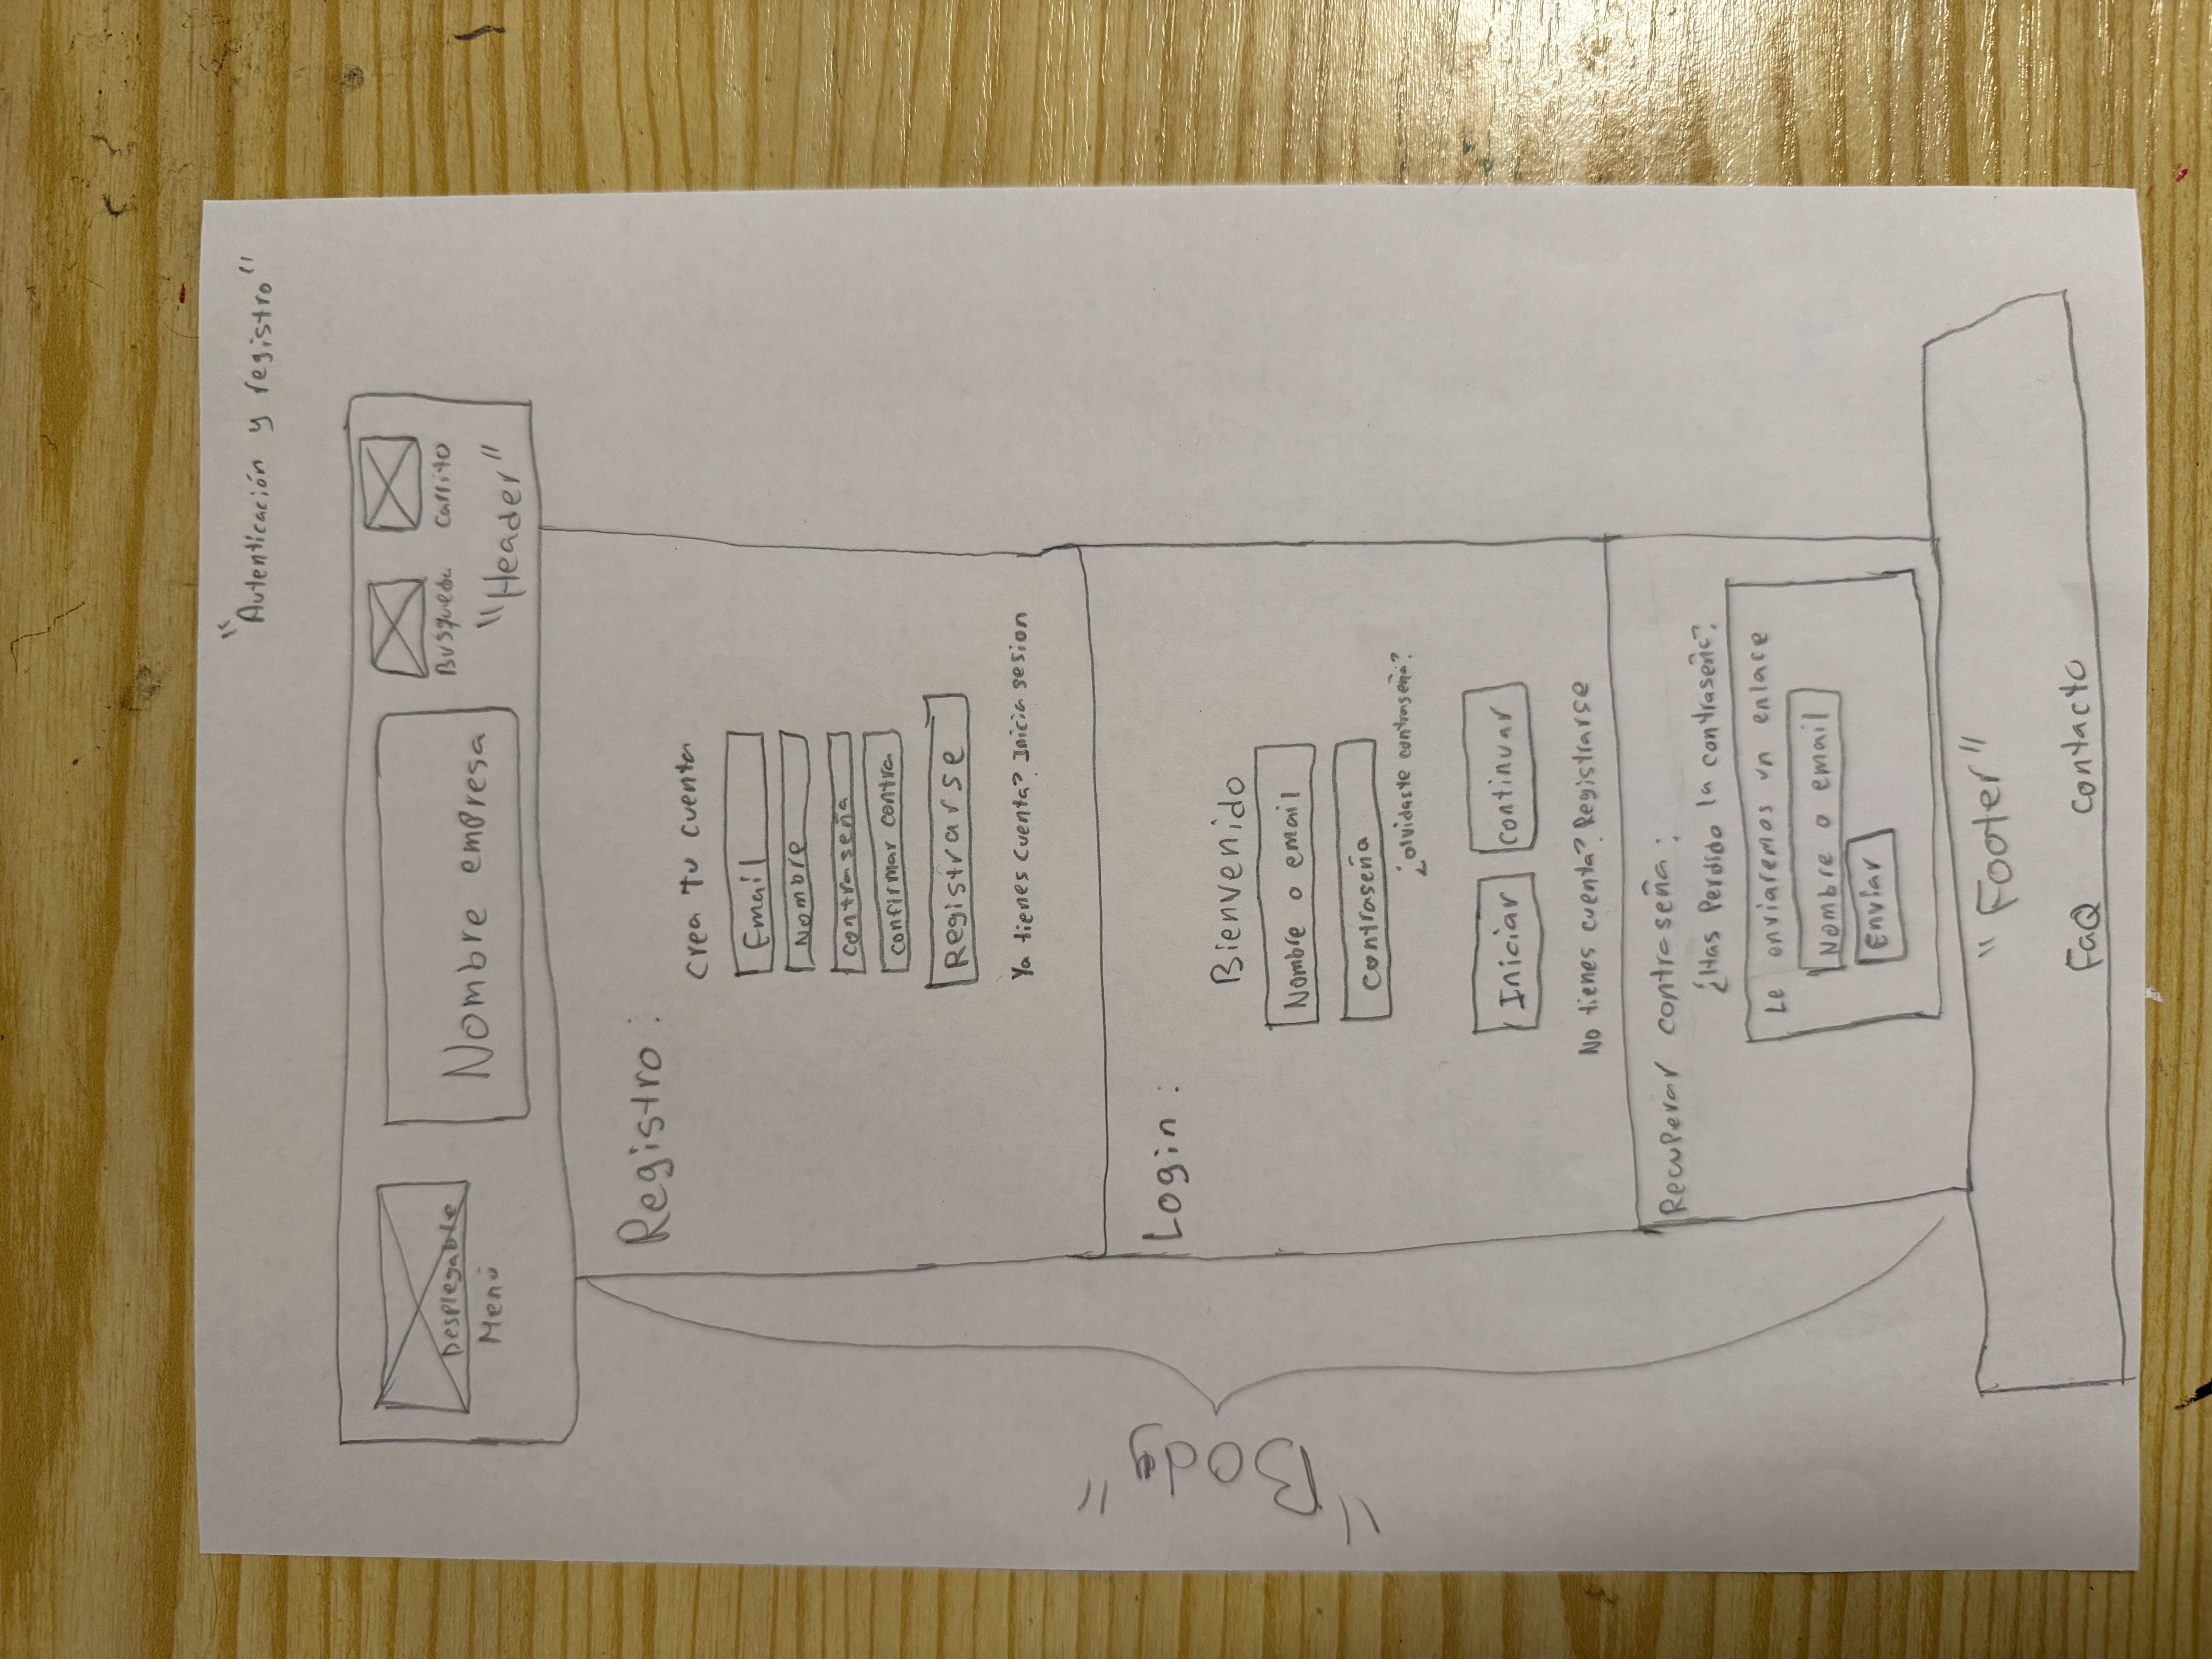 "Autenticación y registro"
Desplegable
Menú
Nombre empresa
Busqueda
Carrito
"Header"
"Body"
Registro:
Crea tu cuenta
Email
Nombre
Contraseña
Confirmar contra
Registrarse
Ya tienes cuenta? Inicia sesion
Login:
Bienvenido
Nombre o email
Contraseña
¿olvidaste contraseña?
Iniciar
Continuar
No tienes cuenta? Registrarse
Recuperar contraseña:
¿Has Perdido la contraseña?
Le enviaremos un enlace
Nombre o email
Enviar
"Footer"
FaQ
Contacto